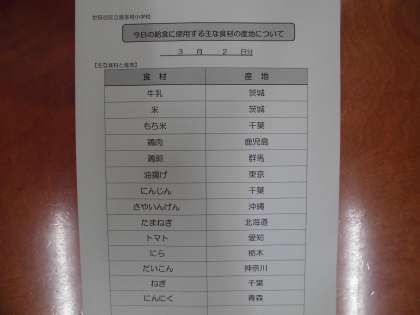 今日の給食に使用する主な食材の産地について
3 月 2 日分
【主な食材と産地】
食 材 産 地
牛乳 茨城
米 茨城
もち米 千葉
鶏肉 鹿児島
鶏卵 群馬
油揚げ 東京
にんじん 千葉
さやいんげん 沖縄
たまねぎ 北海道
トマト 愛知
にら 栃木
だいこん 神奈川
ねぎ 千葉
にんにく 青森